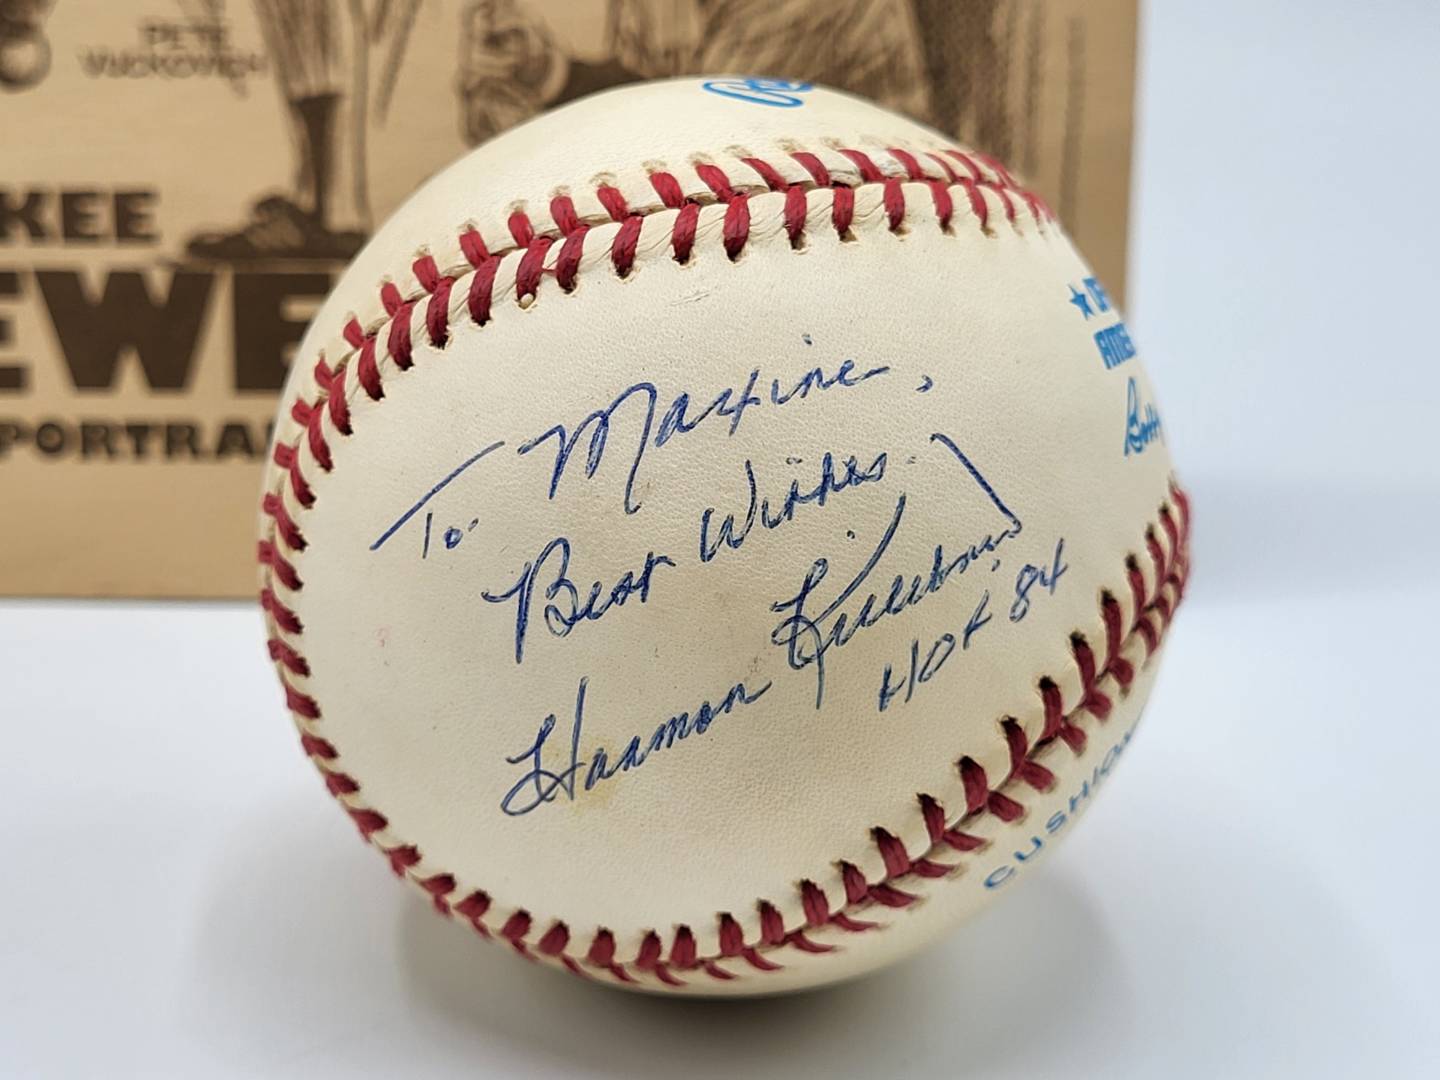 PETE
VUCKOVICH
KEE
EWE
PORTRA
To Maxine,
Best Wishes
Harmon Killebrew
HOF 84
AME
Bobby
CUSHION